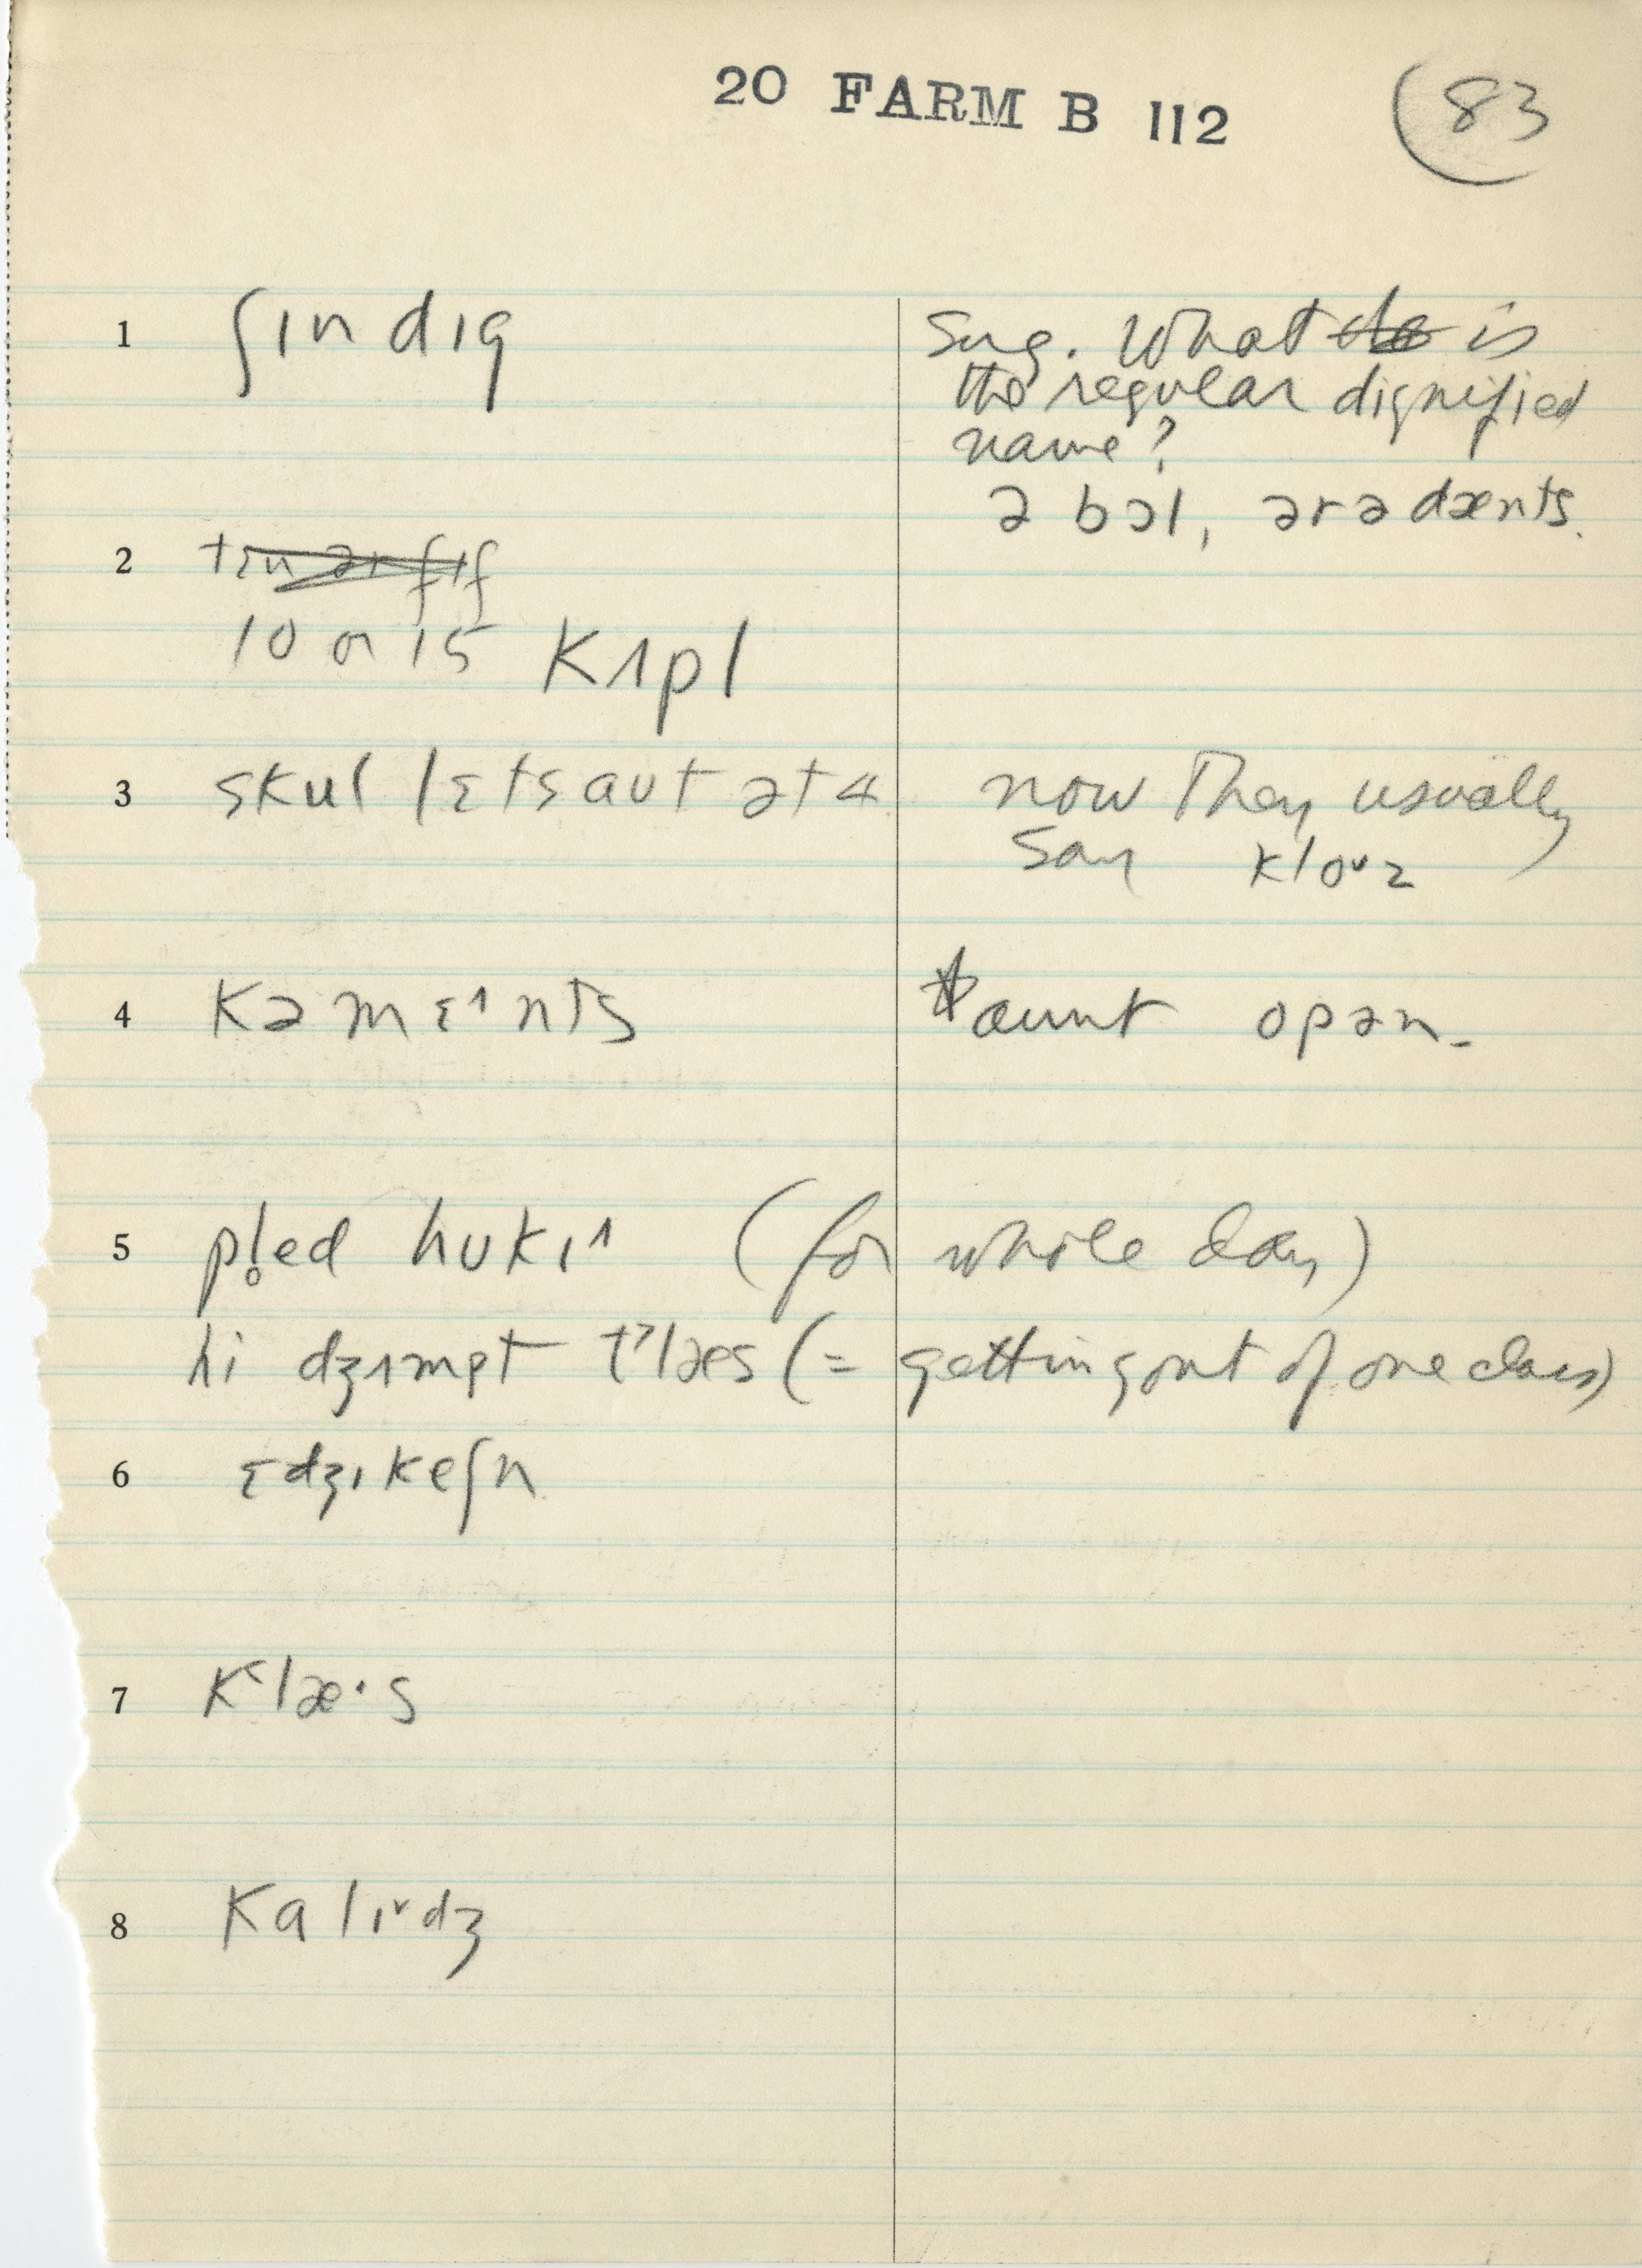 20 FARM B 112
83
1 ʃɪndɪg
Sug. What is
the regular dignified
name?
ə bɔl, ər ə dænts.
2
10 or 15 Kʌpl
3 skul lɛts aut ət 4
now They usually
say kloᵛz
4 Kəmɛ^nts
taunt opən.
5 pl̥ed hukɪ^ (for whole day)
hi dʒʌmpt t'læs (= getting out of one class)
6 ɛdʒɪkeʃn
7 K'læ·s
8 Kalɪᵛdʒ